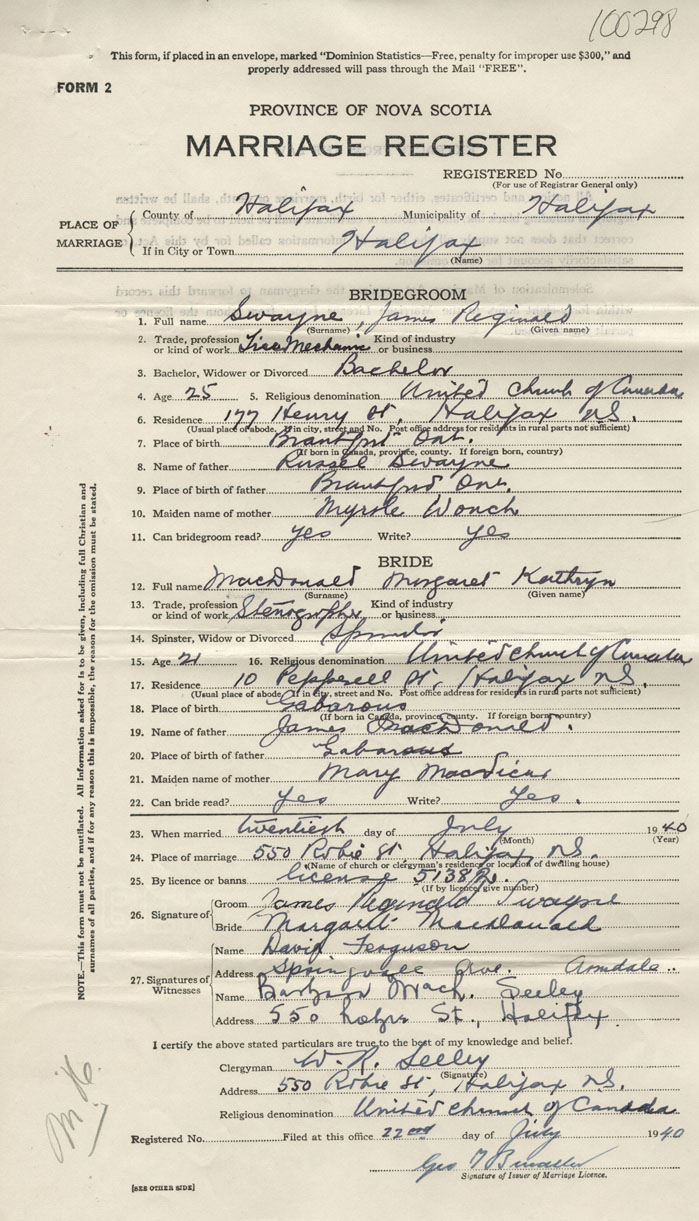 100298
This form, if placed in an envelope, marked "Dominion Statistics—Free, penalty for improper use $300," and
properly addressed will pass through the Mail "FREE".
FORM 2
PROVINCE OF NOVA SCOTIA
MARRIAGE REGISTER
REGISTERED No.
(For use of Registrar General only)
PLACE OF MARRIAGE
County of Halifax Municipality of Halifax
If in City or Town Halifax
(Name)
BRIDEGROOM
1. Full name Swayne, James Reginald
(Surname) (Given name)
2. Trade, profession Kind of industry
or kind of work Mechanic or business
3. Bachelor, Widower or Divorced Bachelor
4. Age 25 5. Religious denomination United Church of Canada
6. Residence 177 Henry St, Halifax N.S.
(Usual place of abode. If in city, street and No. Post office address for residents in rural parts not sufficient)
7. Place of birth Brantford Ont.
(If born in Canada, province, county. If foreign born, country)
8. Name of father Russell Swayne
9. Place of birth of father Brantford Ont.
10. Maiden name of mother Myrtle Wonch
11. Can bridegroom read? yes Write? yes
BRIDE
12. Full name MacDonald Margaret Kathryn
(Surname) (Given name)
13. Trade, profession Kind of industry
or kind of work Stenographer or business
14. Spinster, Widow or Divorced Spinster
15. Age 21 16. Religious denomination United Church of Canada
17. Residence 10 Pepperell St, Halifax N.S.
(Usual place of abode. If in city, street and No. Post office address for residents in rural parts not sufficient)
18. Place of birth Gabarous
(If born in Canada, province, county. If foreign born, country)
19. Name of father James MacDonald.
20. Place of birth of father Gabarous
21. Maiden name of mother Mary
22. Can bride read? Yes Write? Yes.
23. When married twentieth day of July 1940
(Month) (Year)
24. Place of marriage 550 Robie St, Halifax N.S.
(Name of church or clergyman's residence or location of dwelling house)
25. By licence or banns license
(If by licence, give number)
26. Signature of
Groom James Reginald Swayne
Bride Margaret MacDonald
27. Signatures of Witnesses
Name David Ferguson
Address Springvale Ave. Armdale..
Name Barbara Mach. Seeley
Address 550 Robie St., Halifax.
I certify the above stated particulars are true to the best of my knowledge and belief.
Clergyman W. R. Seeley
(Signature)
Address 550 Robie St, Halifax N.S.
Religious denomination United Church of Canada
Registered No. Filed at this office 22nd day of July 1940
Geo
Signature of Issuer of Marriage Licence.
[SEE OTHER SIDE]
NOTE.—This form must not be mutilated. All information asked for is to be given, including full Christian and
surnames of all parties, and if for any reason this is impossible, the reason for the omission must be stated.